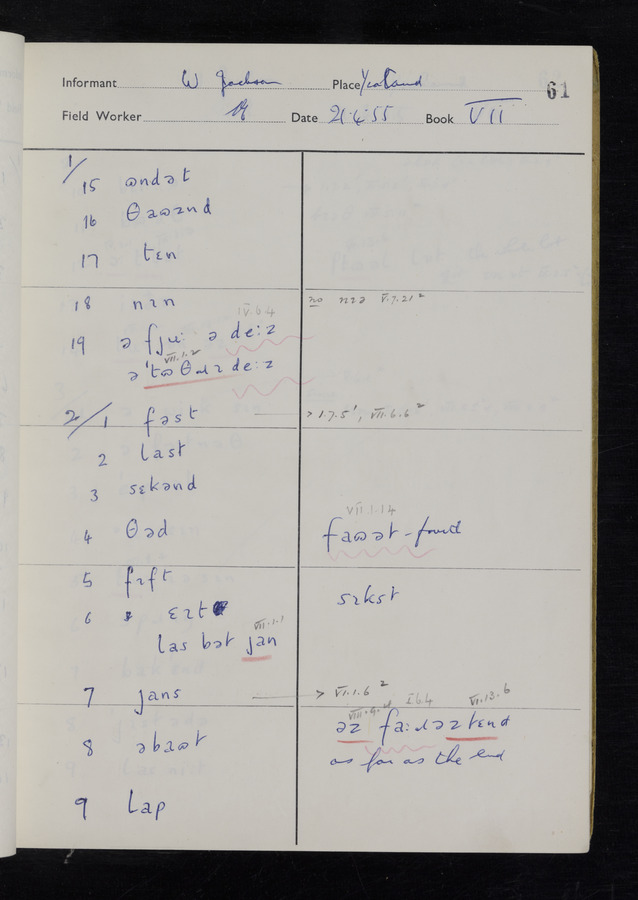 Informant W Jackson Place Yealand 61
Field Worker Date 21·4·55 Book VII
1/15 ɷndət
16 θaɷzɪnd
17 tɛn
18 nɪn no nɪə V.7.21²
IV.6.4
19 ə fjuː ə deːz
VII.1.2
ə 'tɷ θɹɪ deːz
2/1 fəst > 1.7.5', VII.6.6²
2 last
3 sɛkənd
VII.1.14
4 θəd faɷət - fourth
5 fɪft sɪkst
6 ɛɪt
VII.1.1
las bət jan
7 jans > VI.1.6²
VIII.9. I.6.4 VI.13.6
8 əbaɷt əz faːɹ əz tɛnd
as far as the end
9 lap